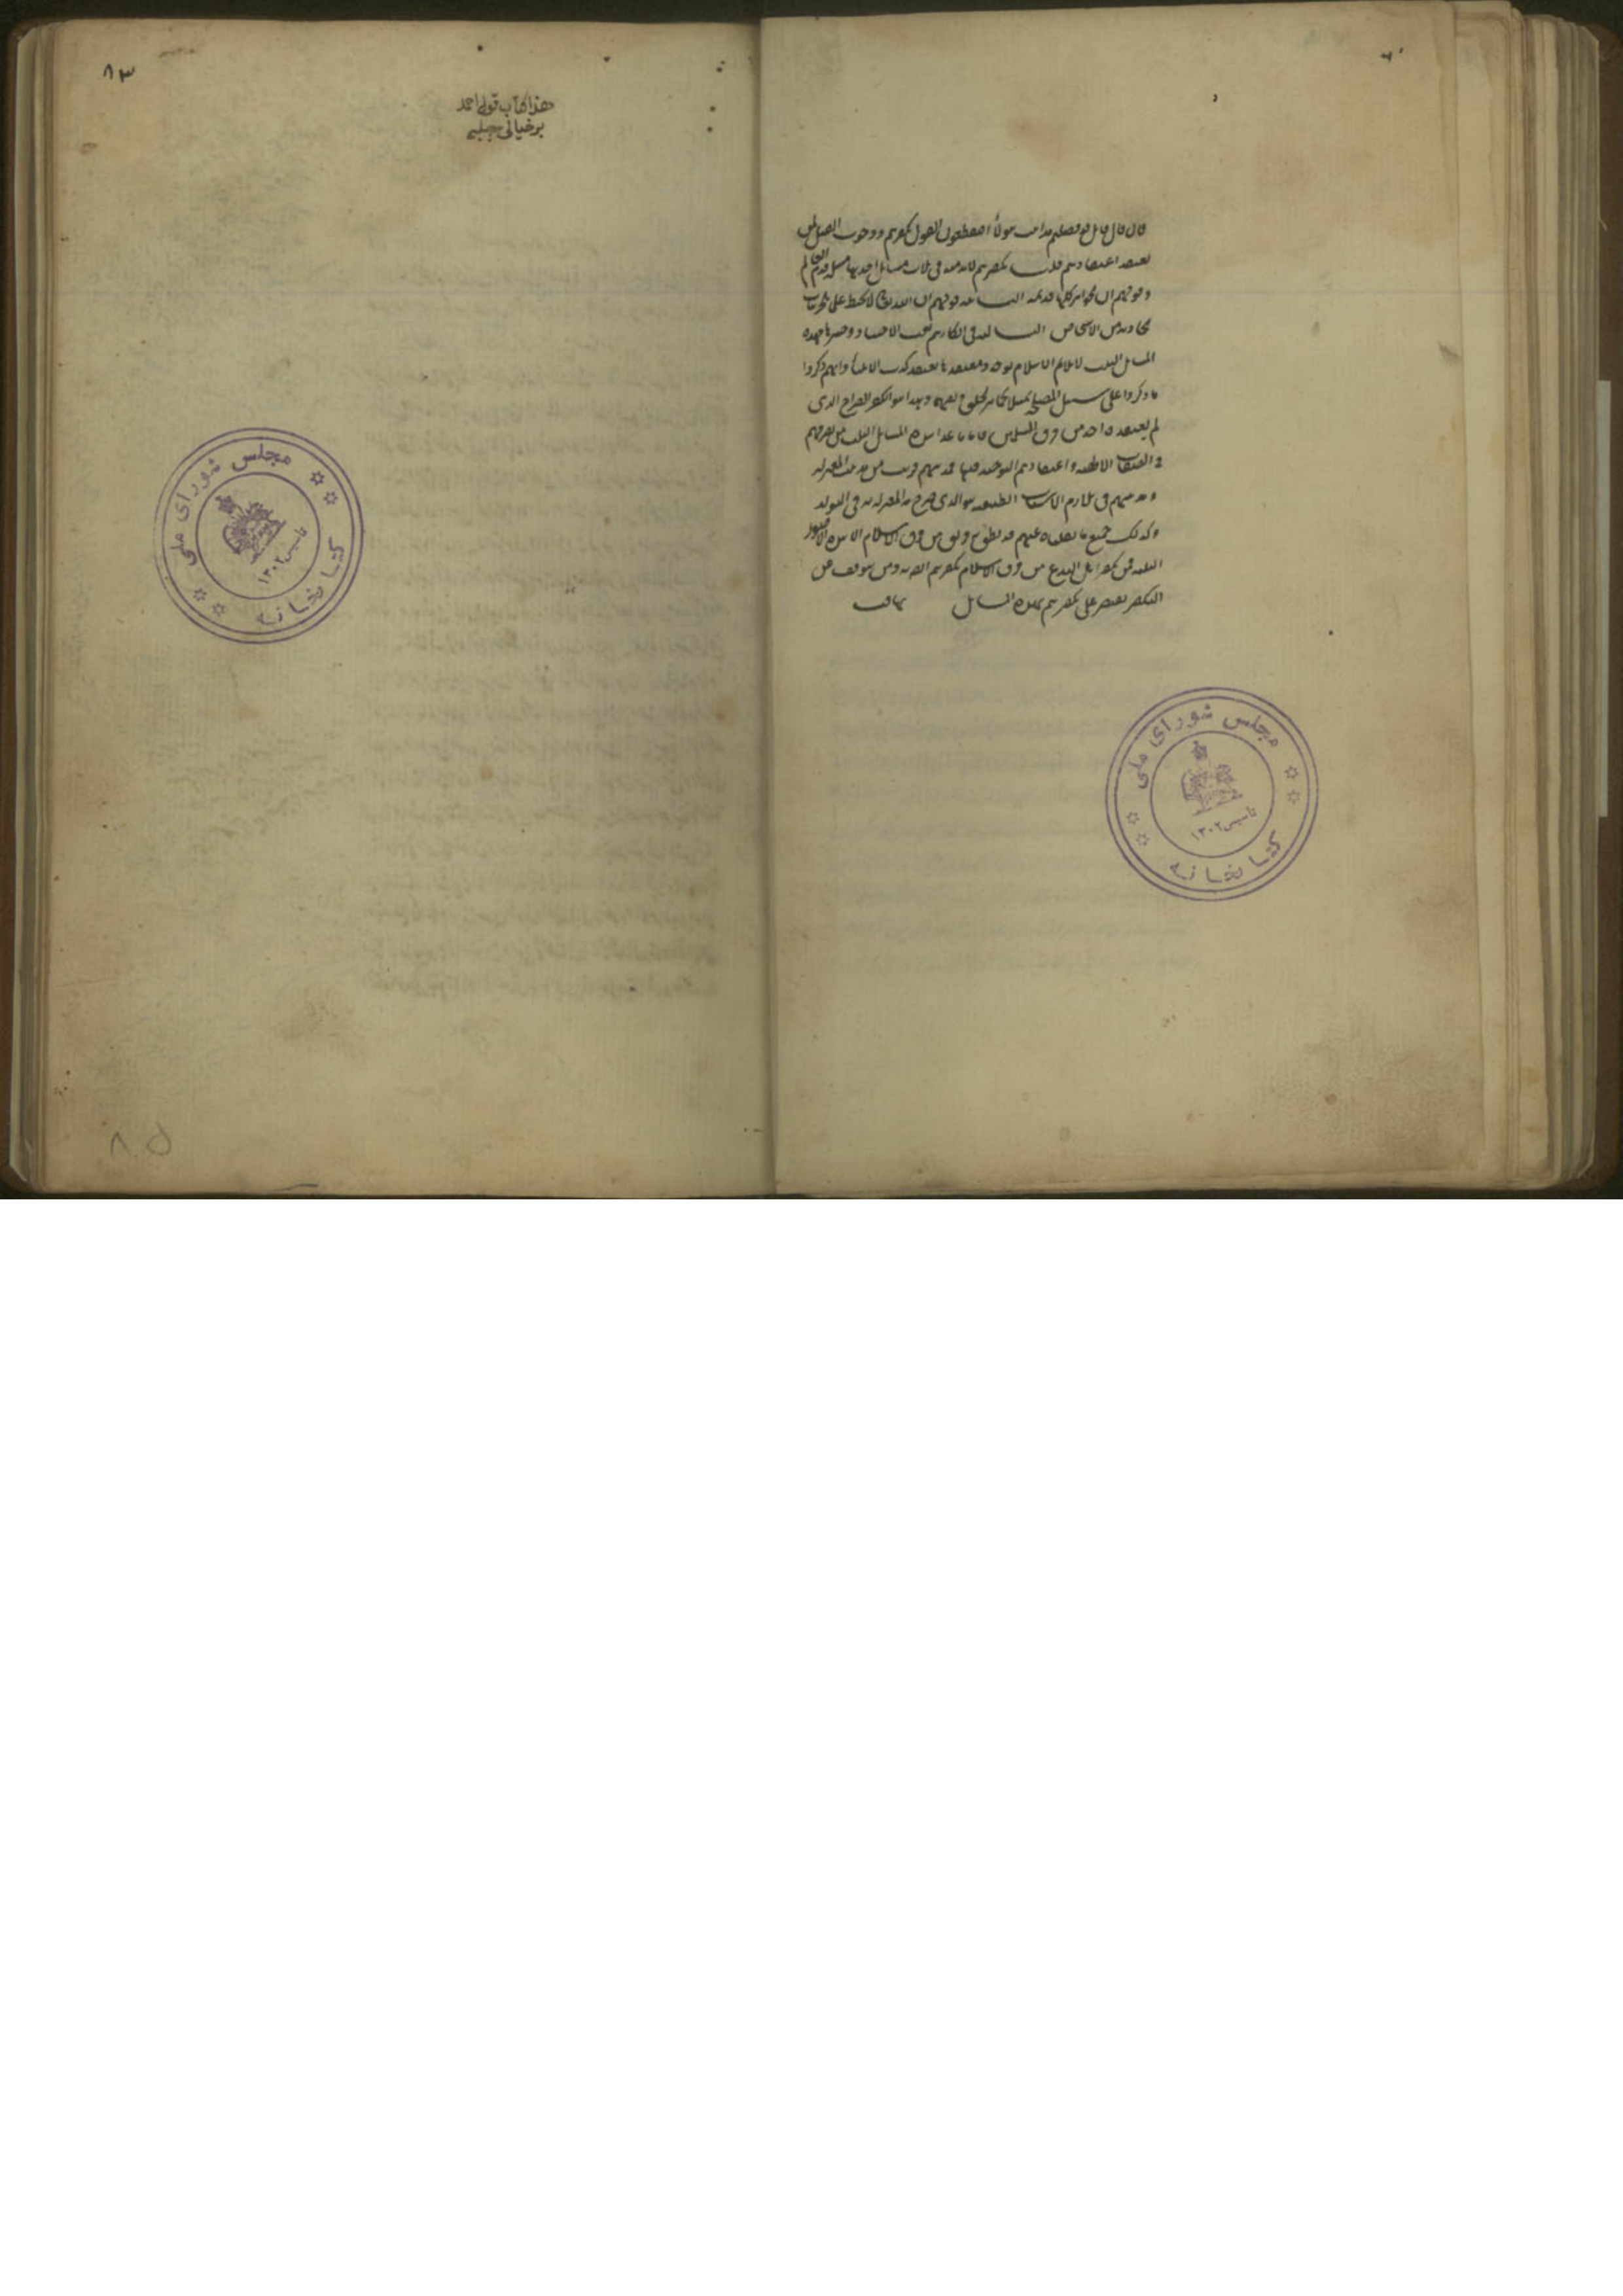 فان قال قائل قد فصلتم مذاهب هولاء افتقطعون القول بكفرهم ووجوب القتل لمن
يعتقد اعتقادهم قلنا بكفرهم لابد منه فى ثلاث مسائل احديها مسئلة قدم العالم
وقولهم ان الجواهر كلها قديمة الثانية قولهم ان الله تعالى لا يحيط علما بالجزئيات
الحادثة من الاشخاص الثالثة فى انكارهم بعث الاجساد وحشرها فهذه
المسائل الثلث لا تلائم الاسلام بوجه ومعتقدها معتقد كذب الانبياء وانهم ذكروا
ما ذكروا على سبيل المصلحة تمثيلا لجماهير الخلق وتفهيما وهذا هو الكفر الصراح الذى
لم يعتقده احد من فرق المسلمين فاما ما عدا هذه المسائل الثلث من تصرفهم
فى الصفات الالهية واعتقادهم التوحيد فيها فمذهبهم قريب من مذهب المعتزلة
ومذهبهم فى تلازم الاسباب الطبيعية هو الذى صرح به المعتزلة به فى التولد
وكذلك جميع ما نقلناه عنهم قد نطق به فريق من فرق الاسلام الا هذه الاصول
الثلثة فمن يكفر اهل البدع من فرق الاسلام يكفرهم ايضا به ومن يتوقف عن
التكفير يقتصر على تكفيرهم بهذه المسائل تهافت
مجلس شورای ملی
کتابخانه
تاسیس ۱۳۰۲
۸۳
هذا كتاب قول احمد
بر خيالى چلبى
مجلس شورای ملی
کتابخانه
تاسیس ۱۳۰۲
۸۵